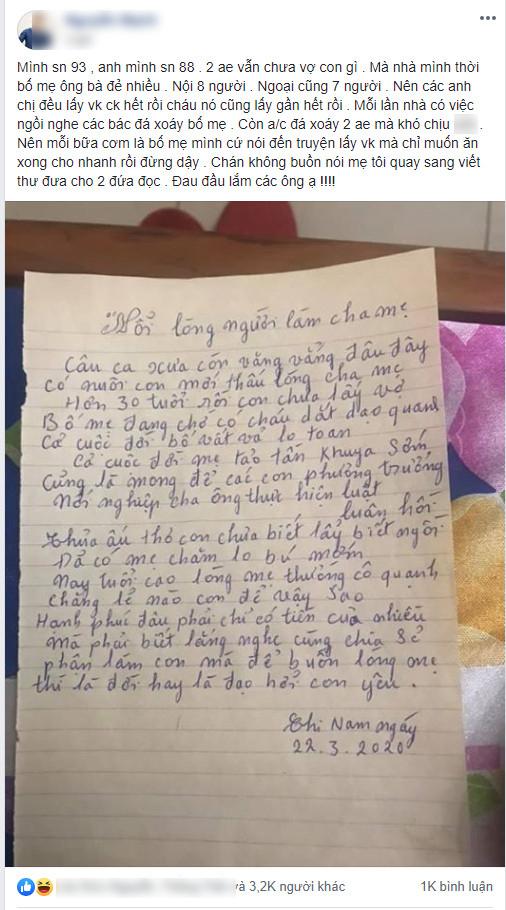 Mình sn 93 , anh mình sn 88 . 2 ae vẫn chưa vợ con gì . Mà nhà mình thời
bố mẹ ông bà đẻ nhiều . Nội 8 người . Ngoại cũng 7 người . Nên các anh
chị đều lấy vk ck hết rồi cháu nó cũng lấy gần hết rồi . Mỗi lần nhà có việc
ngồi nghe các bác đá xoáy bố mẹ . Còn a/c đá xoáy 2 ae mà khó chịu .
Nên mỗi bữa cơm là bố mẹ mình cứ nói đến truyện lấy vk mà chỉ muốn ăn
xong cho nhanh rồi đừng dậy . Chán không buồn nói mẹ tôi quay sang viết
thư đưa cho 2 đứa đọc . Đau đầu lắm các ông ạ !!!!
"Nổi lòng người làm cha mẹ
Câu ca xưa còn văng vẳng đâu đây
Có nuôi con mới thấu lòng cha mẹ
Hơn 30 tuổi rồi con chưa lấy vợ
Bố mẹ đang chờ có cháu dắt dạo quanh
Cả cuộc đời bố vất vả lo toan
Cả cuộc đời mẹ tảo tần khuya sớm
Củng là mong để các con phương trưởng
Nối nghiệp cha ông thực hiện luật
luân hồi.
Thủa ấu thơ con chưa biết lẩy biết ngồi
Đả có mẹ chăm lo bú mớm
Nay tuổi cao lòng mẹ thường cô quạnh
Chẳng lẻ nào con để vậy sao
Hạnh phúc đâu phải chỉ có tiền của nhiều
Mà phải biết lắng nghe cùng chia sẻ
phận làm con mà để buồn lòng mẹ
thì là đời hay là đạo hởi con yêu.
Chi Nam ngày
22.3.2020
và 3,2K người khác
1K bình luận